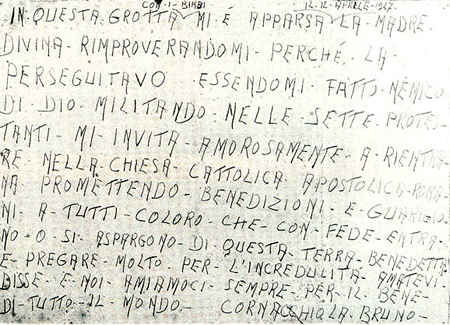 CON-I-BIMBI IL-12-APRILE-1947-
IN-QUESTA-GROTTA-MI-È-APPARSA-LA-MADRE-
DIVINA-RIMPROVERANDOMI-PERCHÉ-LA-
PERSEGUITAVO ESSENDOMI-FATTO-NEMICO
DI-DIO-MILITANDO-NELLE-SETTE-PROTES-
TANTI-MI-INVITA-AMOROSAMENTE-A-RIENTRA-
RE-NELLA-CHIESA-CATTOLICA-APOSTOLICA-ROMA-
NA-PROMETTENDO-BENEDIZIONI-E-GUARIGIO-
NI-A-TUTTI-COLORO-CHE-CON-FEDE-ENTRA-
NO-O-SI-ASPARGONO-DI-QUESTA-TERRA-BENEDETTA
E-PREGARE-MOLTO-PER-L'INCREDULITÀ-AMATEVI
DISSE-E-NOI-AMIAMOCI-SEMPRE-PER-IL-BENE-
DI-TUTTO-IL-MONDO- CORNACCHIOLA-BRUNO-